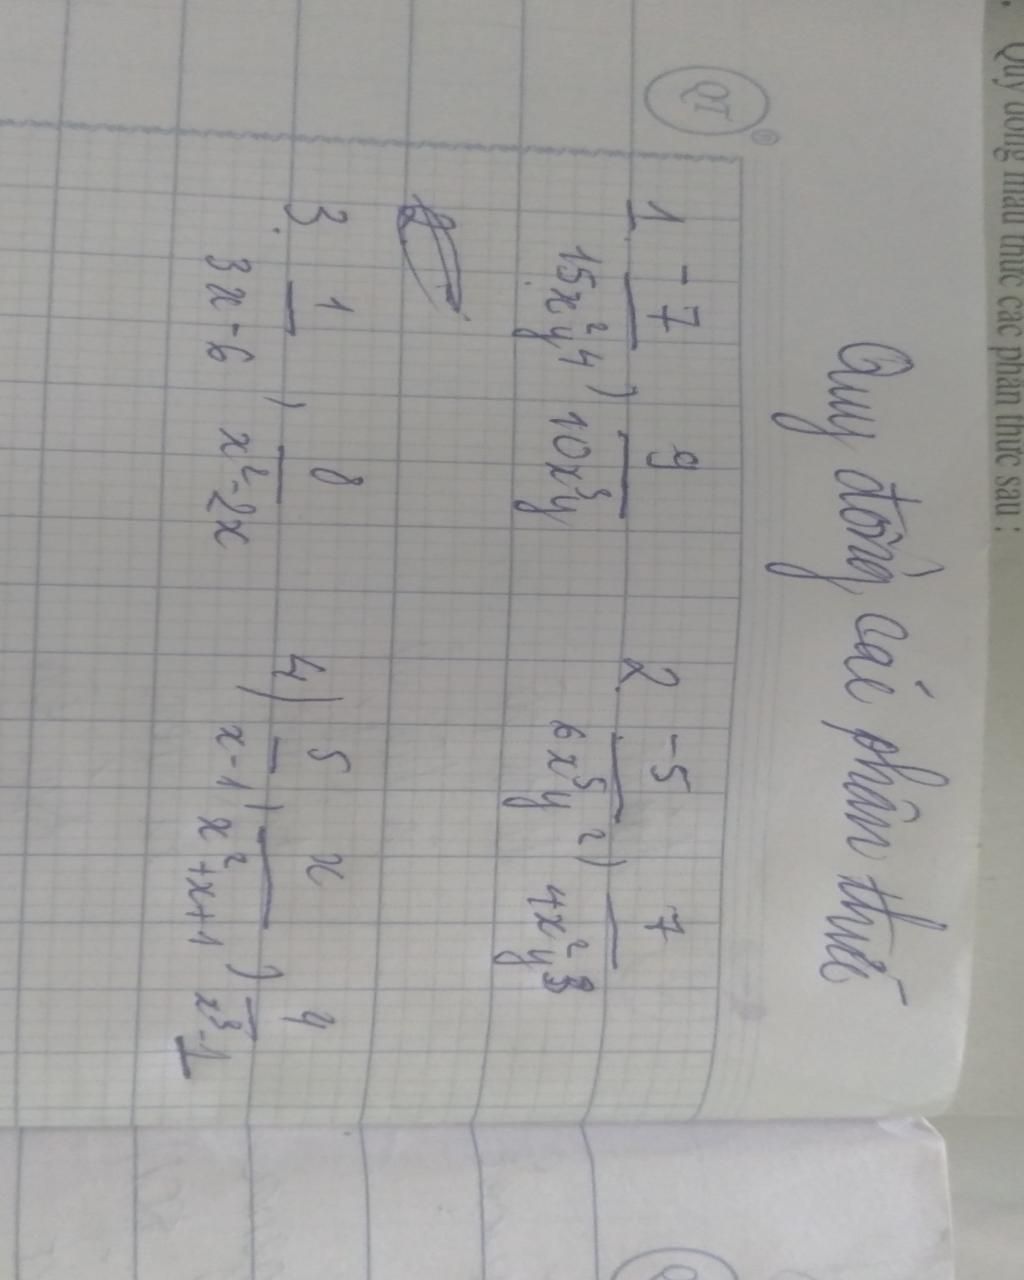 Quy đồng mẫu thức các phân thức sau :
Quy đồng các phân thức
QT
1 -7/15x²y⁴ , 9/10x³y 2 -5/6x⁵y² , 7/4x²y³
3. 1/3x-6 , 8/x²-2x 4) 5/x-1 , x/x²+x+1 , 4/x³-1